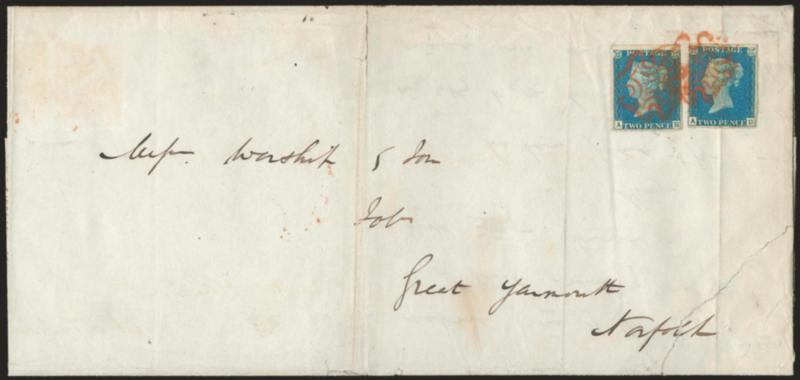 POSTAGE POSTAGE
TWO PENCE A D TWO PENCE
A
Messrs. Worship & Son
Great Yarmouth
Norfolk